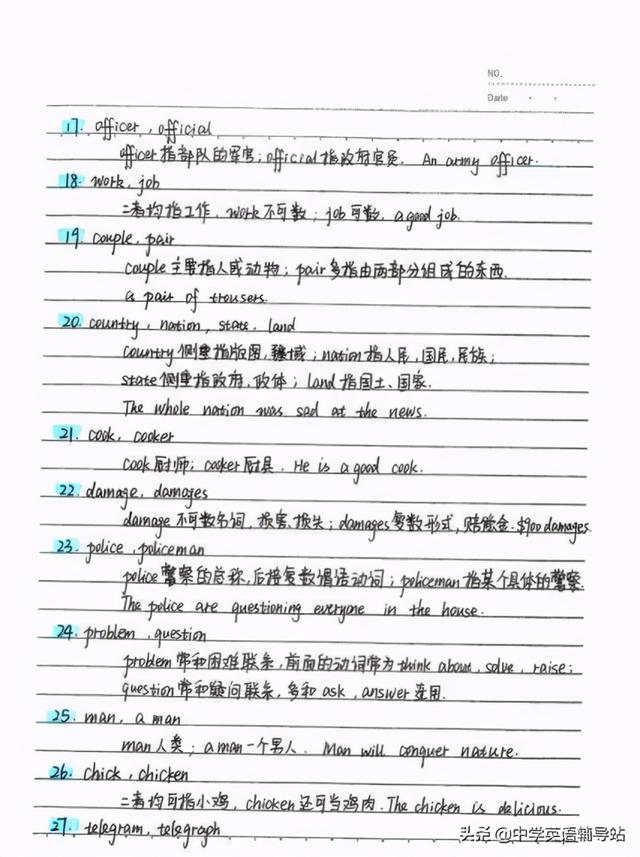 NO.
Date
17. officer, official
officer指部队的军官; official指政府官员. An army officer.
18. work, job
二者均指工作, work不可数; job可数. a good job.
19. couple, pair
couple主要指人或动物; pair多指由两部分组成的东西.
a pair of trousers.
20. country, nation, state, land
country侧重指版图, 疆域; nation指人民, 国民, 民族;
state侧重指政府, 政体; land指国土、国家.
The whole nation was sad at the news.
21. cook, cooker
cook厨师; cooker厨具. He is a good cook.
22. damage, damages
damage不可数名词, 损害、损失; damages复数形式, 赔偿金. $900 damages
23. police, policeman
police警察的总称, 后接复数谓语动词; policeman指某个具体的警察.
The police are questioning everyone in the house.
24. problem, question
problem常和困难联系, 前面的动词常为think about, solve, raise;
question常和疑问联系, 多和ask, answer连用.
25. man, a man
man人类; a man一个男人. Man will conquer nature.
26. chick, chicken
二者均可指小鸡, chicken还可当鸡肉. The chicken is delicious.
27. telegram, telegraph
头条@中学英语辅导站